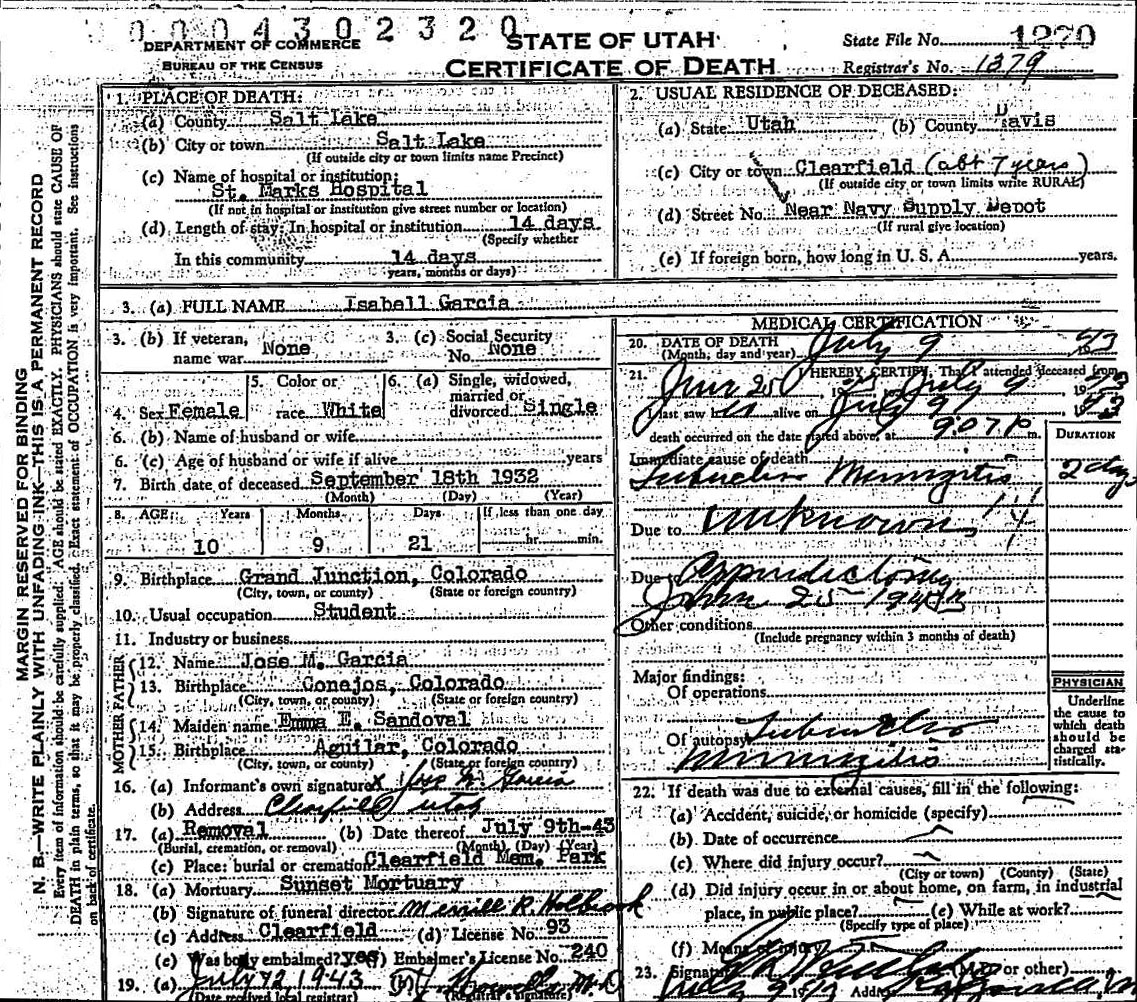 0004302320
DEPARTMENT OF COMMERCE
BUREAU OF THE CENSUS
STATE OF UTAH
CERTIFICATE OF DEATH
State File No. 1270
Registrar's No. 1379
MARGIN RESERVED FOR BINDING
N. B.—WRITE PLAINLY WITH UNFADING INK—THIS IS A PERMANENT RECORD
Every item of information should be carefully supplied. AGE should be stated EXACTLY. PHYSICIANS should state CAUSE OF
DEATH in plain terms, so that it may be properly classified. Exact statement of OCCUPATION is very important. See instructions
on back of certificate.
1. PLACE OF DEATH:
(a) County Salt Lake
(b) City or town Salt Lake
(If outside city or town limits name Precinct)
(c) Name of hospital or institution:
St. Marks Hospital
(If not in hospital or institution give street number or location)
(d) Length of stay: In hospital or institution 14 days
(Specify whether
In this community 14 days
years, months or days)
2. USUAL RESIDENCE OF DECEASED:
(a) State Utah (b) County Davis
(c) City or town Clearfield (abt 7 years)
(If outside city or town limits write RURAL)
(d) Street No. Near Navy Supply Depot
(If rural give location)
(e) If foreign born, how long in U. S. A. years.
3. (a) FULL NAME Isabell Garcia
3. (b) If veteran, name war None 3. (c) Social Security No. None
4. Sex Female 5. Color or race White 6. (a) Single, widowed, married or divorced Single
6. (b) Name of husband or wife
6. (c) Age of husband or wife if alive years
7. Birth date of deceased September 18th 1932
(Month) (Day) (Year)
8. AGE: Years Months Days If less than one day
10 9 21 hr. min.
9. Birthplace Grand Junction, Colorado
(City, town, or county) (State or foreign country)
10. Usual occupation Student
11. Industry or business
FATHER
12. Name Jose M. Garcia
13. Birthplace Conejos, Colorado
(City, town, or county) (State or foreign country)
MOTHER
14. Maiden name Emma E. Sandoval
15. Birthplace Aguilar, Colorado
(City, town, or county) (State or foreign country)
16. (a) Informant's own signature x Jose M. Garcia
(b) Address Clearfield Utah
17. (a) Removal (b) Date thereof July 9th-43
(Burial, cremation, or removal) (Month) (Day) (Year)
(c) Place: burial or cremation Clearfield Mem. Park
18. (a) Mortuary Sunset Mortuary
(b) Signature of funeral director Merrill R. Holbrook
(c) Address Clearfield (d) License No. 93
(e) Was body embalmed? yes (f) Embalmer's License No. 240
19. (a) July 12, 1943 (b) M.D.
(Date received local registrar) (Registrar's signature)
MEDICAL CERTIFICATION
20. DATE OF DEATH
(Month, day and year) July 9 43
21. I HEREBY CERTIFY, That I attended deceased from
June 25, 1943 to July 9 1943
I last saw her alive on July 9 1943
death occurred on the date stated above, at 9:07 P m. DURATION
Immediate cause of death
Tubercular Meningitis 2 days
Due to Unknown 14
Due to Appendectomy
June 25 1943
Other conditions
(Include pregnancy within 3 months of death)
Major findings:
Of operations
Of autopsy Tubercular
Meningitis
PHYSICIAN
Underline
the cause to
which death
should be
charged sta-
tistically.
22. If death was due to external causes, fill in the following:
(a) Accident, suicide, or homicide (specify)
(b) Date of occurrence
(c) Where did injury occur?
(City or town) (County) (State)
(d) Did injury occur in or about home, on farm, in industrial
place, in public place? (e) While at work?
(Specify type of place)
(f) Means of injury
23. Signature (M.D. or other)
July 9 1943 Address